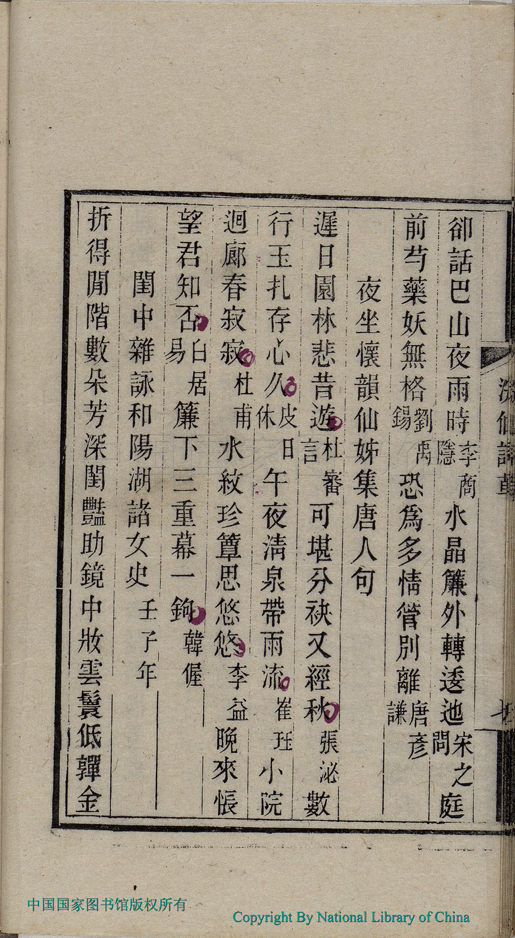 卻話巴山夜雨時李商隱水晶簾外轉逶迤宋之問庭
前芍藥妖無格劉禹錫恐爲多情管別離唐彦謙
夜坐懷韻仙姊集唐人句
遲日園林悲昔遊杜審言可堪分袂又經秋張泌數
行玉扎存心久皮日休午夜淸泉帶雨流崔珏小院
迴廊春寂寂杜甫水紋珍簟思悠悠李益晚來悵
望君知否白居易簾下三重幕一鉤韓偓
閨中雜詠和陽湖諸女史壬子年
折得閒階數朵芳深閨豔助鏡中妝雲鬟低嚲金
中国国家图书馆版权所有
Copyright By National Library of China